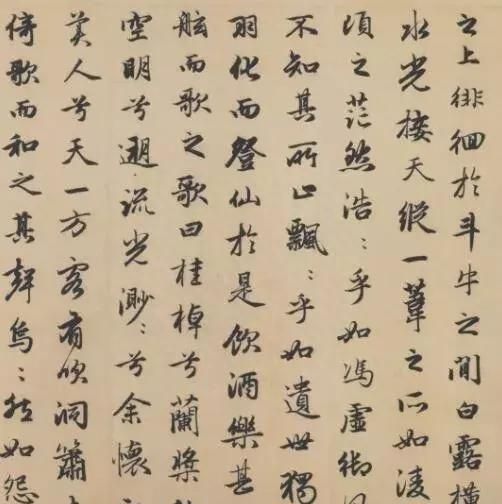 之上徘徊於斗牛之間白露橫
水光接天縱一葦之所如凌
頃之茫然浩〻乎如馮虛御
不知其所止飄〻乎如遺世獨
羽化而登仙於是飲酒樂甚
舷而歌之歌曰桂棹兮蘭槳
空明兮遡流光渺〻兮余懷
美人兮天一方客有吹洞簫
倚歌而和之其聲烏〻然如怨